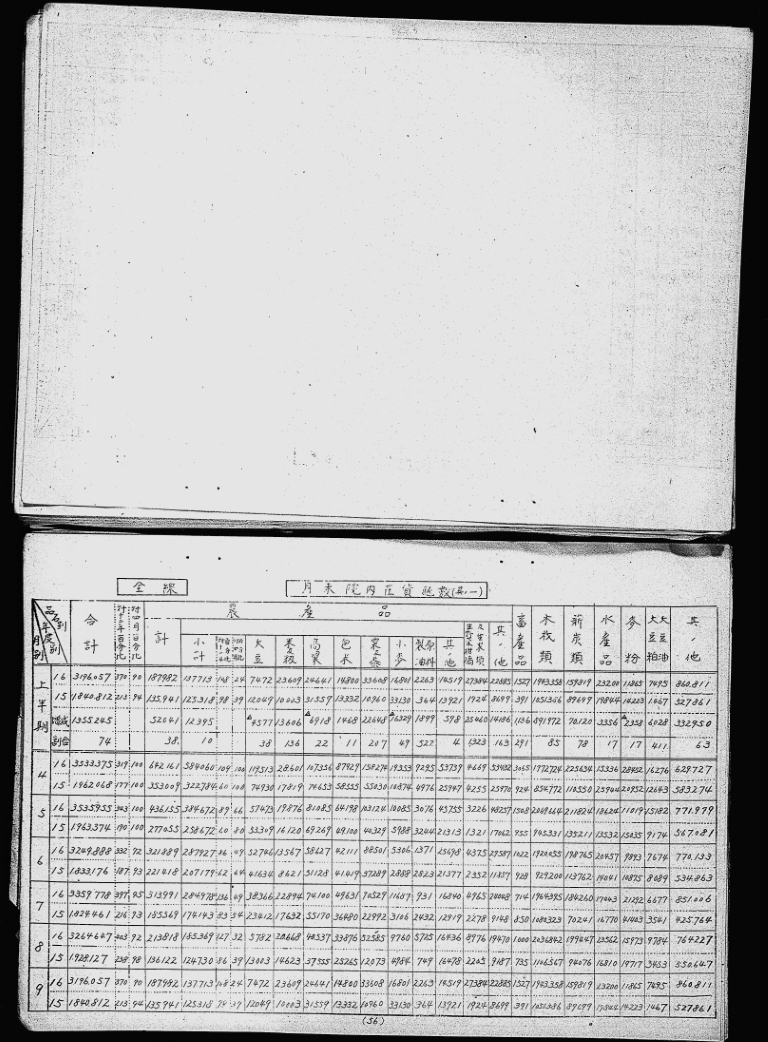 全線
月末院内在貨趨数(其ノ一)
農産品
品名別 年度別 月別 合計 対十二年百分比 対四月百分比 計 小計 大豆 高粱 包米 小麦 其ノ他 其ノ他 畜産品 木材類 薪炭類 水産品 麦粉 大豆粕 大豆油 其ノ他
上半期 16 3196057 370 90 187982 137713 148 24 7472 23609 24641 14800 33608 16801 2263 14519 27384 22885 1527 1943358 159819 23200 11865 7495 860.811
15 1840.812 213 94 135.941 125.318 98 39 12049 10003 31559 13332 10960 33130 364 13921 1924 8699 391 1051366 89699 19844 14223 1467 527861
増減 1355245 52041 12.395 4577 13606 6918 1468 22648 16329 1899 598 25460 14186 1136 891972 70120 3356 2358 6028 332950
割合 74 38 10 38 136 22 11 207 49 522 4 1323 163 291 85 78 17 17 411 63
4 16 3533375 319 100 642161 584060 109 100 119513 28601 107356 87929 158274 19353 9295 53739 4669 53432 3065 1772724 225634 15336 28452 16276 629.727
15 1962068 177 100 353009 322784 60 100 74930 17819 74653 58555 55030 10874 4976 25947 4255 25970 924 854772 110550 25944 20952 12643 583274
5 16 3535955 343 100 436155 384672 89 66 57473 19876 81085 64198 103124 10085 3076 45755 3226 48257 1508 2069664 211824 18624 11019 15182 771.979
15 1963374 190 100 277055 258672 60 80 53309 16120 69269 49100 40329 5988 3244 21313 1321 17062 955 945331 135211 13532 15035 9174 567081
6 16 3249888 332 92 321889 287927 86 49 52746 13567 58627 42111 88501 5306 1371 25698 4375 29587 1022 1920055 198765 20457 9893 7674 770133
15 1833176 187 93 221418 207179 62 64 41634 8621 51128 41419 37289 2888 2823 21377 2352 11887 928 929200 113762 19041 10875 8089 534.863
7 16 3359778 397 95 313991 284978 136 49 38366 22894 74100 49631 70529 11687 931 16840 4965 24048 714 1964395 184260 17043 21292 6677 851006
15 1824461 216 93 185569 174143 83 54 23412 17632 55170 36480 22992 3106 2432 12919 2278 9148 850 1082323 70241 16770 41403 3541 425764
8 16 3264647 403 92 213818 185369 127 32 5782 20668 40537 33876 52585 9760 5725 16436 8976 19470 1000 2036842 199247 23562 15973 9784 764227
15 1928127 238 98 136122 124730 86 39 13003 14623 37555 25265 12073 4984 749 16478 2205 9187 735 1106567 94076 16810 19717 3453 550647
9 16 3196057 370 90 187982 137713 148 24 7472 23609 24641 14800 33608 16801 2263 14519 27384 22885 1527 1943358 159819 23200 11865 7495 860.811
15 1840.812 213 94 135941 125318 98 39 12049 10003 31559 13332 10960 33130 364 13921 1924 8699 391 1051386 89699 19844 14223 1467 527861
(56)